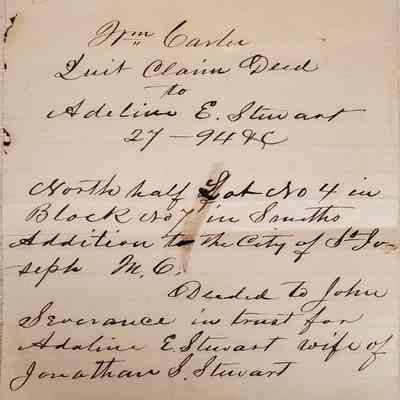 Wm Carter
Quit Claim Deed
to
Adeline E. Stewart
27 - 94 &C
North half Lot No 4 in
Block No 7 in Smiths
Addition to the City of St Jo-
seph M.O.
Deeded to John
Severance in trust for
Adaline E. Stewart wife of
Jonathan S. Stewart